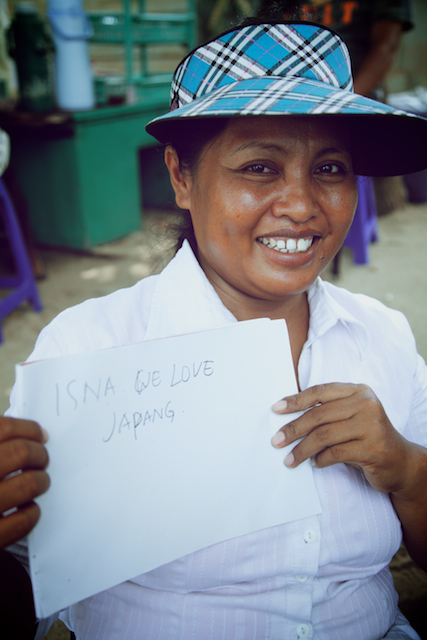 ISNA WE LOVE
JAPANG.